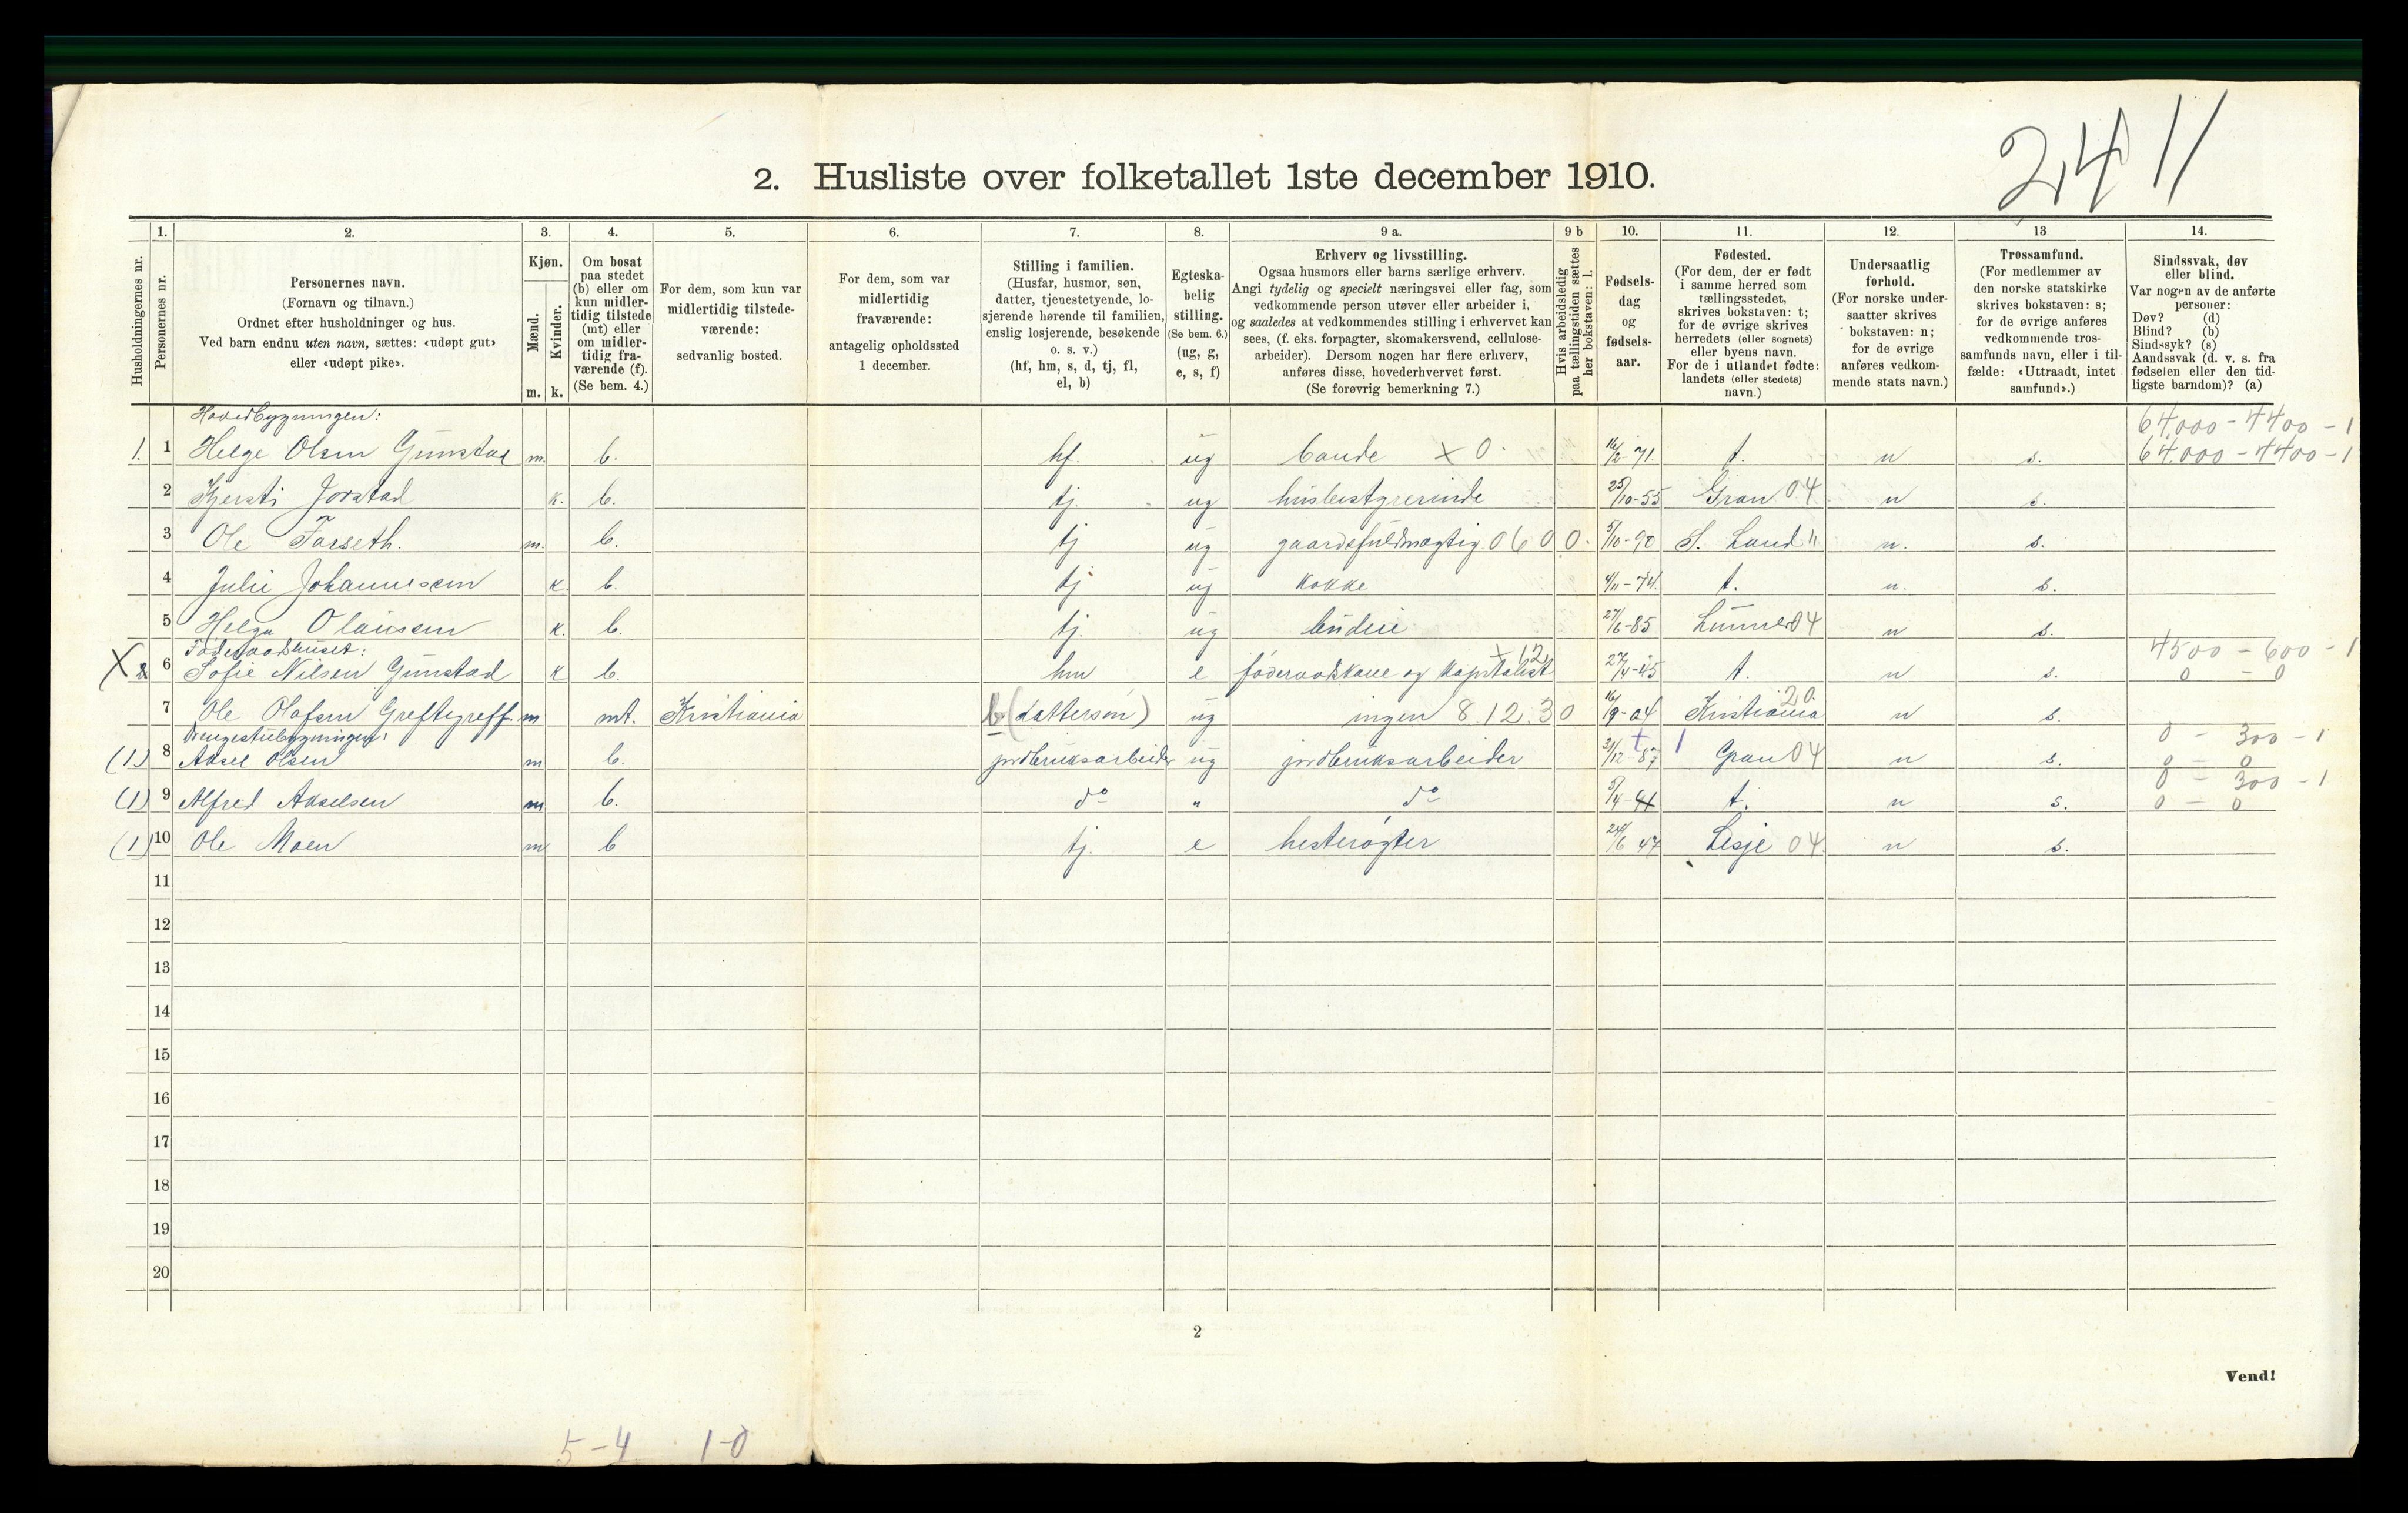 2411
2. Husliste over folketallet 1ste december 1910.
Husholdningernes nr.
1. Personernes nr.
2. Personernes navn.
(Fornavn og tilnavn.)
Ordnet efter husholdninger og hus.
Ved barn endnu uten navn, sættes: «udøpt gut»
eller «udøpt pike».
3. Kjøn.
Mænd. m.
Kvinder. k.
4. Om bosat
paa stedet
(b) eller om
kun midler-
tidig tilstede
(mt) eller
om midler-
tidig fra-
værende (f).
(Se bem. 4.)
5. For dem, som kun var
midlertidig tilstede-
værende:
sedvanlig bosted.
6. For dem, som var
midlertidig
fraværende:
antagelig opholdssted
1 december.
7. Stilling i familien.
(Husfar, husmor, søn,
datter, tjenestetyende, lo-
sjerende hørende til familien,
enslig losjerende, besøkende
o. s. v.)
(hf, hm, s, d, tj, fl,
el, b)
8. Egteska-
belig
stilling.
(Se bem. 6.)
(ug, g,
e, s, f)
9 a. Erhverv og livsstilling.
Ogsaa husmors eller barns særlige erhverv.
Angi tydelig og specielt næringsvei eller fag, som
vedkommende person utøver eller arbeider i,
og saaledes at vedkommendes stilling i erhvervet kan
sees, (f. eks. forpagter, skomakersvend, cellulose-
arbeider). Dersom nogen har flere erhverv,
anføres disse, hovederhvervet først.
(Se forøvrig bemerkning 7.)
9 b Hvis arbeidsledig
paa tællingstiden sættes
her bokstaven: l.
10. Fødsels-
dag
og
fødsels-
aar.
11. Fødested.
(For dem, der er født
i samme herred som
tællingsstedet,
skrives bokstaven: t;
for de øvrige skrives
herredets (eller sognets)
eller byens navn.
For de i utlandet fødte:
landets (eller stedets)
navn.)
12. Undersaatlig
forhold.
(For norske under-
saatter skrives
bokstaven: n;
for de øvrige
anføres vedkom-
mende stats navn.)
13 Trossamfund.
(For medlemmer av
den norske statskirke
skrives bokstaven: s;
for de øvrige anføres
vedkommende tros-
samfunds navn, eller i til-
fælde: «Uttraadt, intet
samfund».)
14. Sindssvak, døv
eller blind.
Var nogen av de anførte
personer:
Døv? (d)
Blind? (b)
Sindssyk? (s)
Aandssvak (d. v. s. fra
fødselen eller den tid-
ligste barndom)? (a)
Hovedbygningen: 64000 - 4400 - 1
1. 1 Helge Olsen Gunstad m. b. hf. ug bonde x 0. 16/2-71. t. n s. 64.000 - 4400 - 1
2 Kjersti Jorstad k. b. tj. ug husbestyrerinde 25/10-55 Gran 04 n s.
3 Ole Farseth. m. b. tj ug gaardsfuldmægtig 060 0. 5/10-90 S. Land " n. s.
4 Julie Johannessen k. b. tj ug kokke 4/11-74. t. n. s.
5 Helga Olaussen k. b. tj. ug budeie 27/6-85 Lunner 04 n s.
Føderaadshuset: x 12 4500 - 600 - 1
X 2 6 Sofie Nilsen Gunstad k b. hm e føderaadskone og kapitalist 27/4-45 t. n s. 0 - 0
7 Ole Olafsen Greftegreff. m mt. Kristiania b (dattersøn) ug ingen 8.12.30 16/9-04 Kristiania 20. n s.
Drengestubygningen: 0 - 300 - 1
(1) 8 Aksel Olsen m b. jordbruksarbeider ug jordbruksarbeider 31/12-87 Gran 04 n s. 0 - 0
0 - 300 - 1
(1) 9 Alfred Akselsen m b. do " do 5/4-91 t. n s. 0 - 0
(1) 10 Ole Moen m b tj. e hesterøgter 24/6 47 Lesje 04 n s.
11
12
13
14
15
16
17
18
19
20
2
Vend!
5-4 1-0